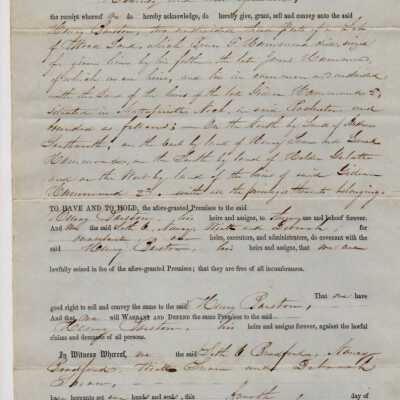 the receipt whereof we do hereby acknowledge, do hereby give, grant, sell and convey unto the said
Henry Barstow, two undivided third parts of a Lot
of Wood Land, which
given him by his father the late James Hammond,
of which as an heir, and lies in common and undivided
with the Land of the heirs of the late Gideon Hammond 2d,
situated in Mattapoisett Neck in said Rochester and
bounded as follows; — On the North by Land of
on the East by land of Henry and
Hammond, on the South by land of
and on the West by land of the heirs of said Gideon
Hammond 2d. with all the privileges thereto belonging.
TO HAVE AND TO HOLD, the afore-granted Premises to the said
Henry Barstow, his heirs and assigns, to his use and behoof forever.
And we the said Seth C, Nancy, and Deborah, for
ourselves, our heirs, executors, and administrators, do covenant with the
said Henry Barstow, his heirs and assigns, that we are
lawfully seized in fee of the afore-granted Premises; that they are free of all incumbrances.
That we have
good right to sell and convey the same to the said Henry Barstow,
And that we will WARRANT AND DEFEND the same Premises to the said
Henry Barstow, his heirs and assigns forever, against the lawful
claims and demands of all persons.
In Witness Whereof, we the said Seth C Bradford, Nancy
Bradford, and Deborah
have hereunto set our hands and seals, this fourth day of